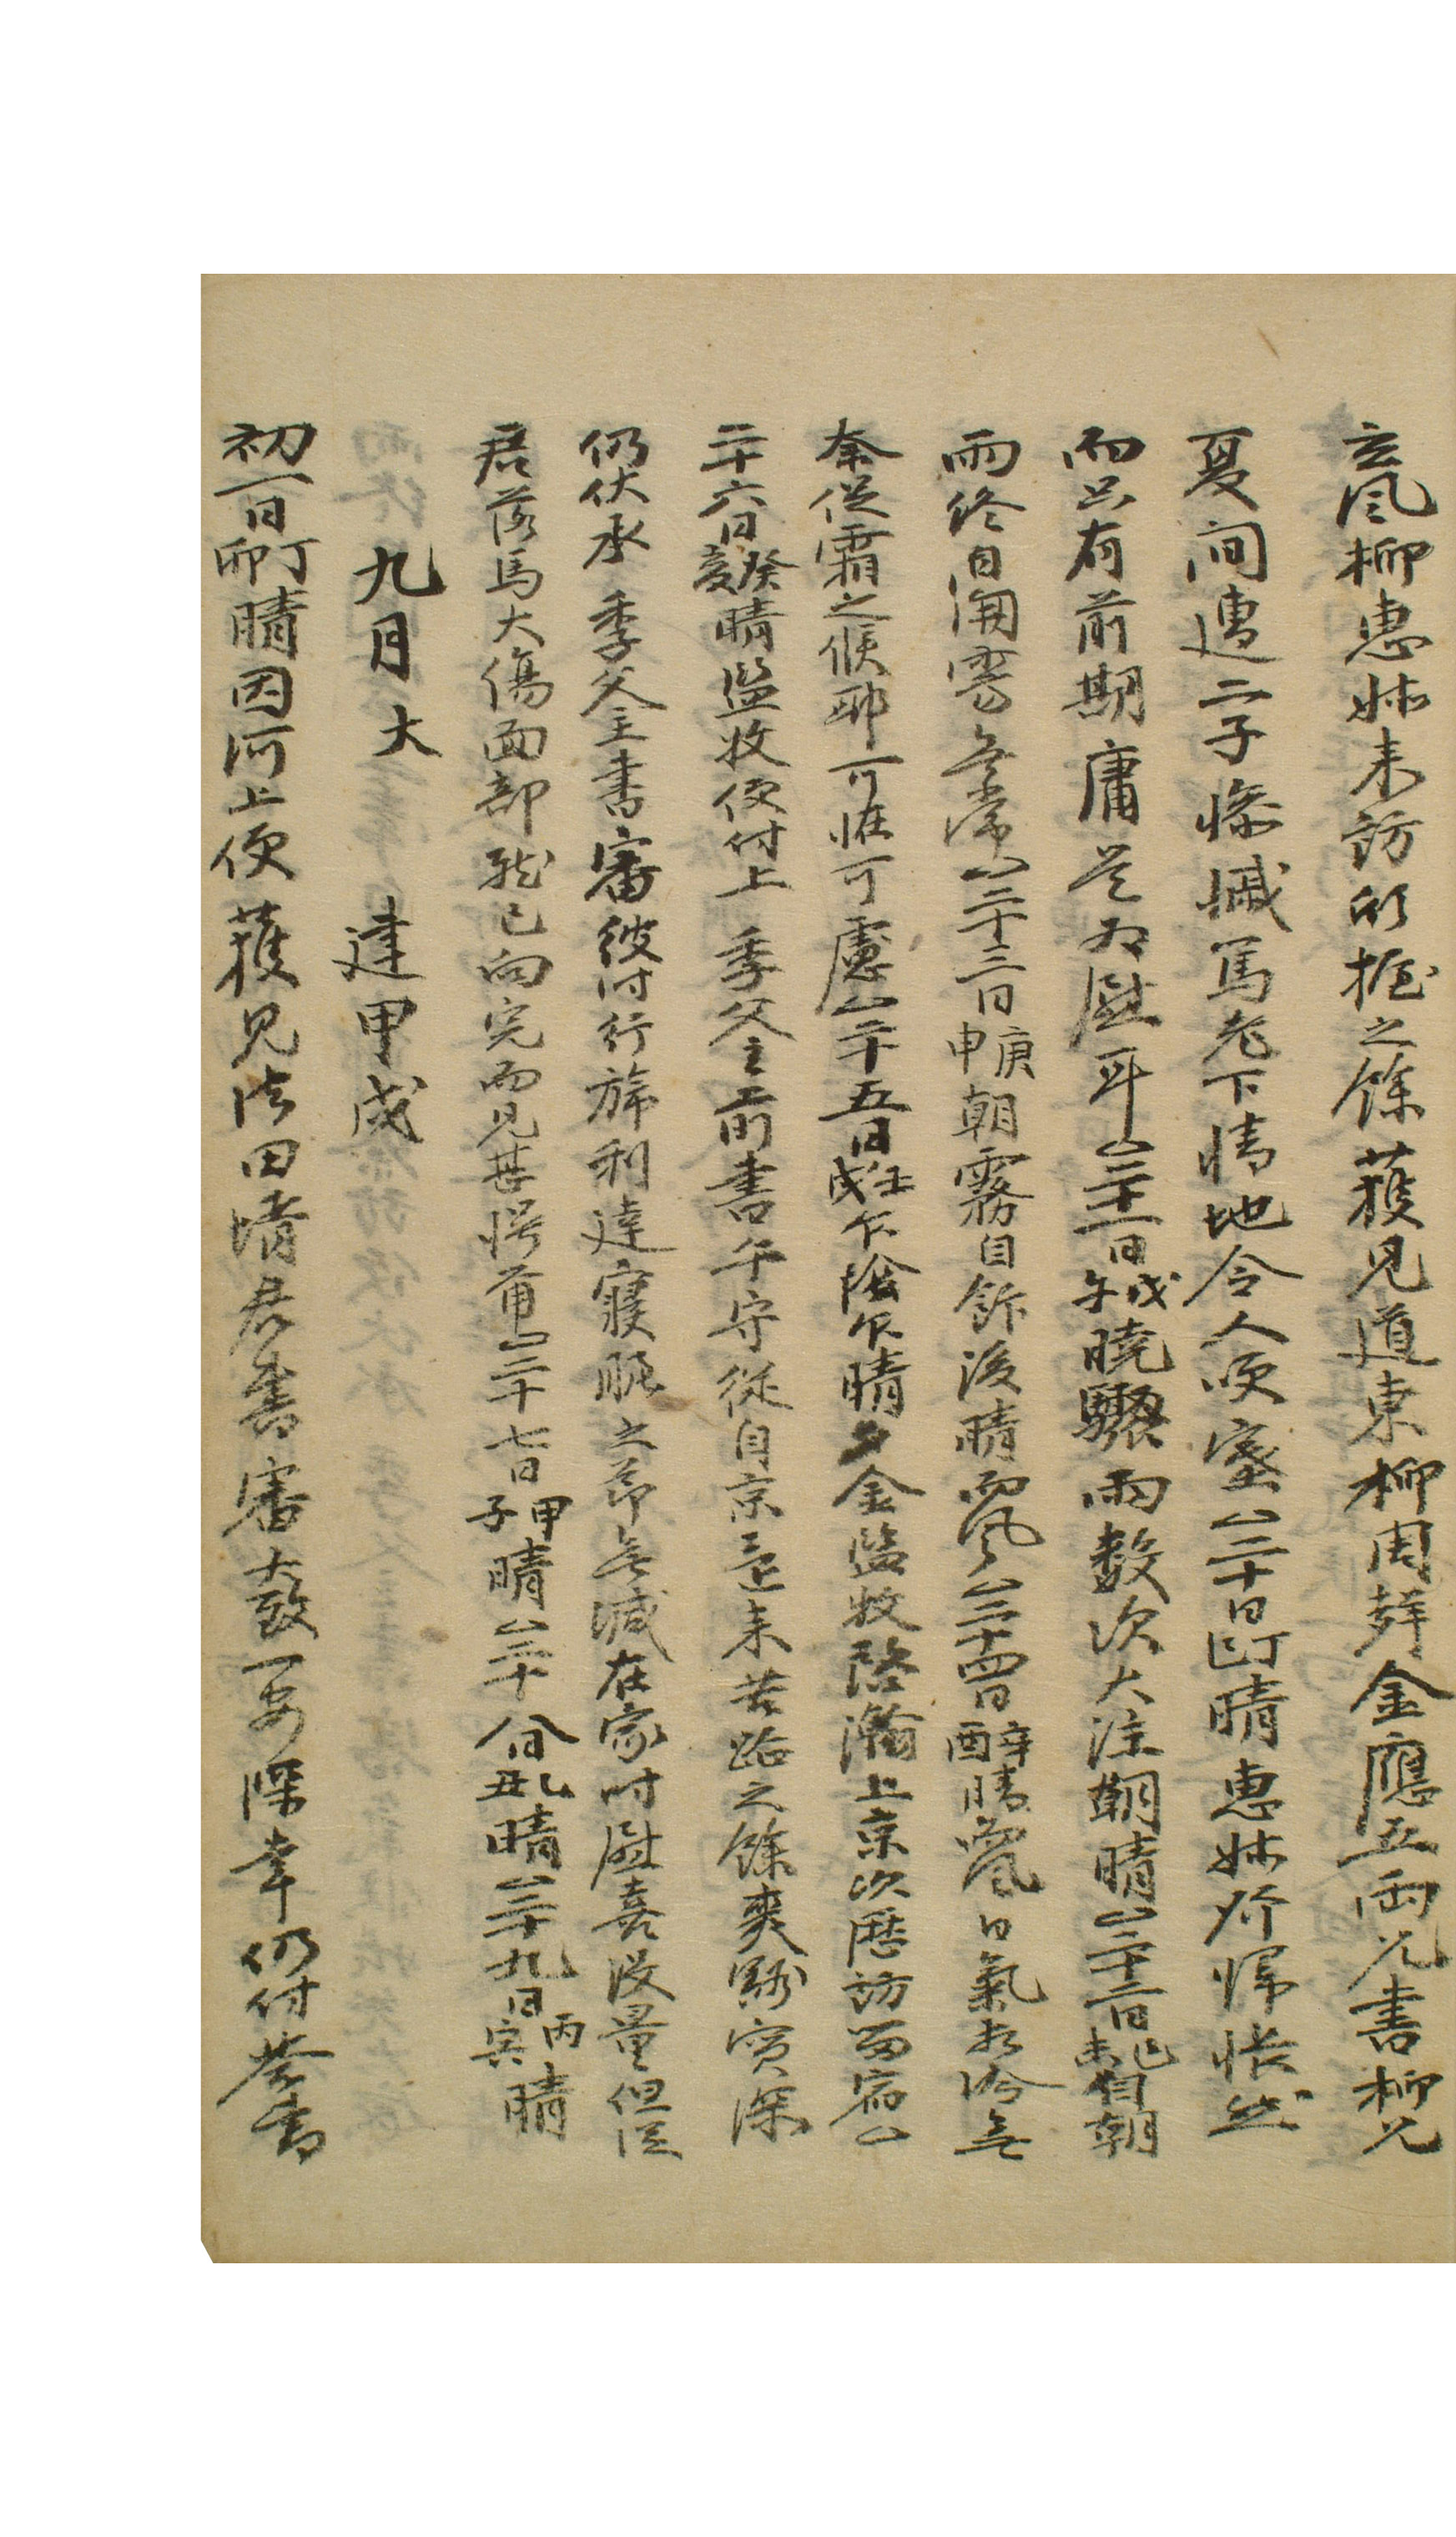 立風柳惠姊來訪欣握之餘獲見道東柳周莘金應五兩兄書柳兄
夏間遭二子慘慽焉老下情地令人哽塞二十日丁巳晴惠姊所歸悵然
而只有前期庸是爲慰耳二十一日戊午曉驟雨數次大注朝晴二十二日己未自朝
雨終日開霽無常二十三日庚申朝霧自飭後晴而風二十四日辛酉晴而風日氣相冷無
奈從霜之候耶可恠可慮二十五日壬戌乍陰乍晴夕金監牧啓瀚上京次歷訪留宿
二十六日癸亥晴監牧便付上 季父主前書午守從自京還來苦路之餘爽豁實深
仍伏承 季父主書審彼時行旆利達寢眠之節無減在家時慰喜沒量但從
君落馬大傷面部雖已向完而見甚愕 二十七日甲子晴二十八日乙丑晴二十九日丙寅晴
九月大 建甲戌
初一日丁卯晴因河上便獲見法田壻君書審大致一安深幸仍付答書